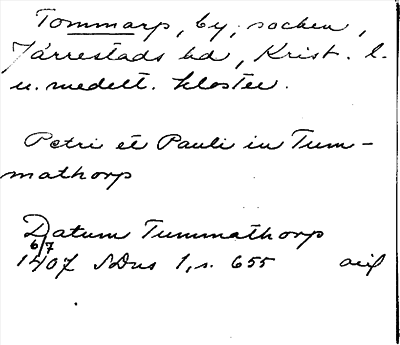 Tommarp, by, socken,
Järrestads hd, Krist. l.
u. medelt. kloster.
Petri et Pauli in Tum-
mathorp
Datum Tummathorp
6/7
1407 SDns 1, s. 655